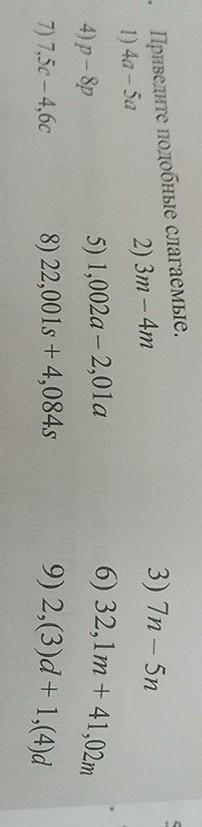 Приведите подобные слагаемые.
1) 4a – 5a 2) 3m – 4m 3) 7n – 5n
4) p – 8p 5) 1,002a – 2,01a 6) 32,1m + 41,02m
7) 7,5c – 4,6c 8) 22,001s + 4,084s 9) 2,(3)d + 1,(4)d